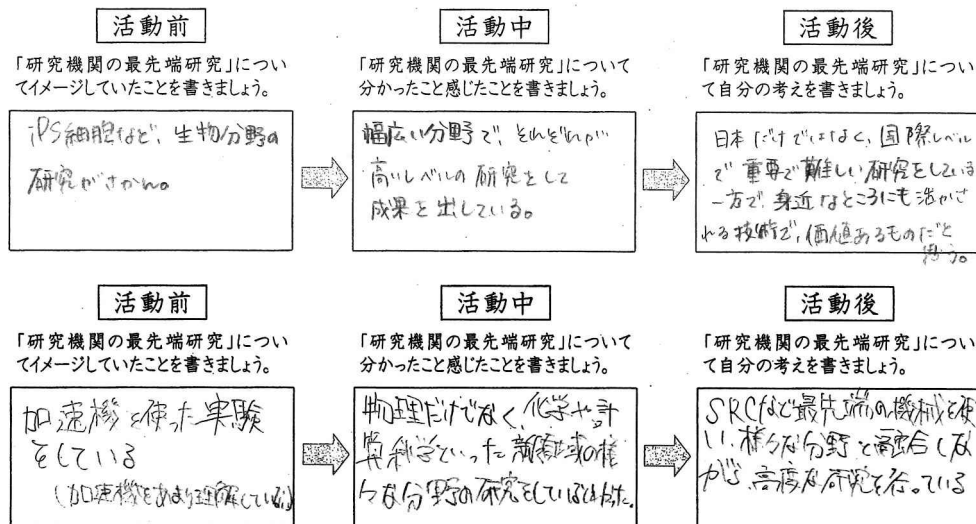 活動前
「研究機関の最先端研究」につい
てイメージしていたことを書きましょう。
iPS細胞など、生物分野の
研究がさかん。
活動中
「研究機関の最先端研究」について
分かったこと感じたことを書きましょう。
幅広い分野で、それぞれが
高いレベルの研究をして
成果を出している。
活動後
「研究機関の最先端研究」につい
て自分の考えを書きましょう。
日本だけではなく、国際レベル
で重要で難しい研究をしている
一方で、身近なところにも活かさ
れる技術で、価値あるものだと
思う。
活動前
「研究機関の最先端研究」につい
てイメージしていたことを書きましょう。
加速機を使った実験
をしている
(加速機をあまり理解していない)
活動中
「研究機関の最先端研究」について
分かったこと感じたことを書きましょう。
物理だけでなく、化学や計
算科学といった新領域の様
々な分野の研究をしているとわかった。
活動後
「研究機関の最先端研究」につい
て自分の考えを書きましょう。
SRCなど最先端の機械を使
い、様々な分野と融合しな
がら、高度な研究を行っている